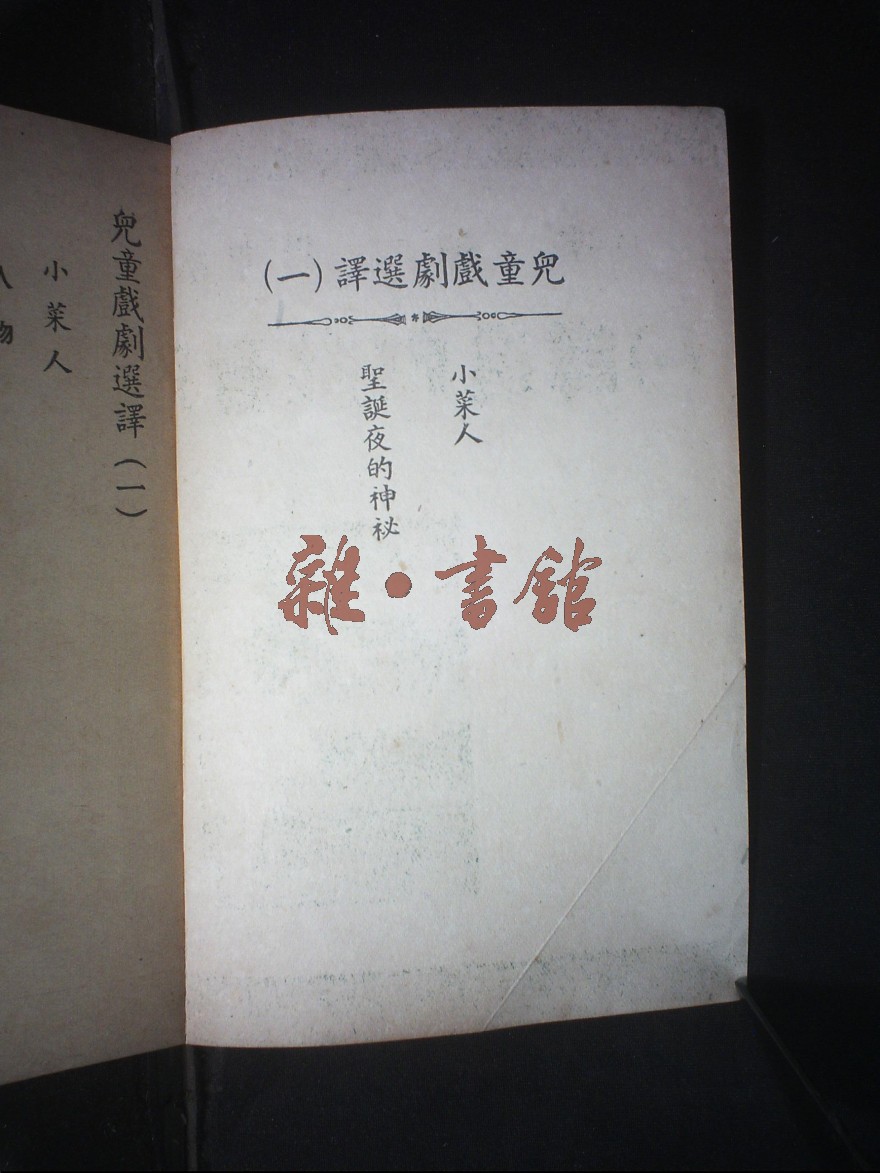 兒童戲劇選譯(一)
小菜人
聖誕夜的神祕
雜•書館
兒童戲劇選譯(一)
小菜人
人物